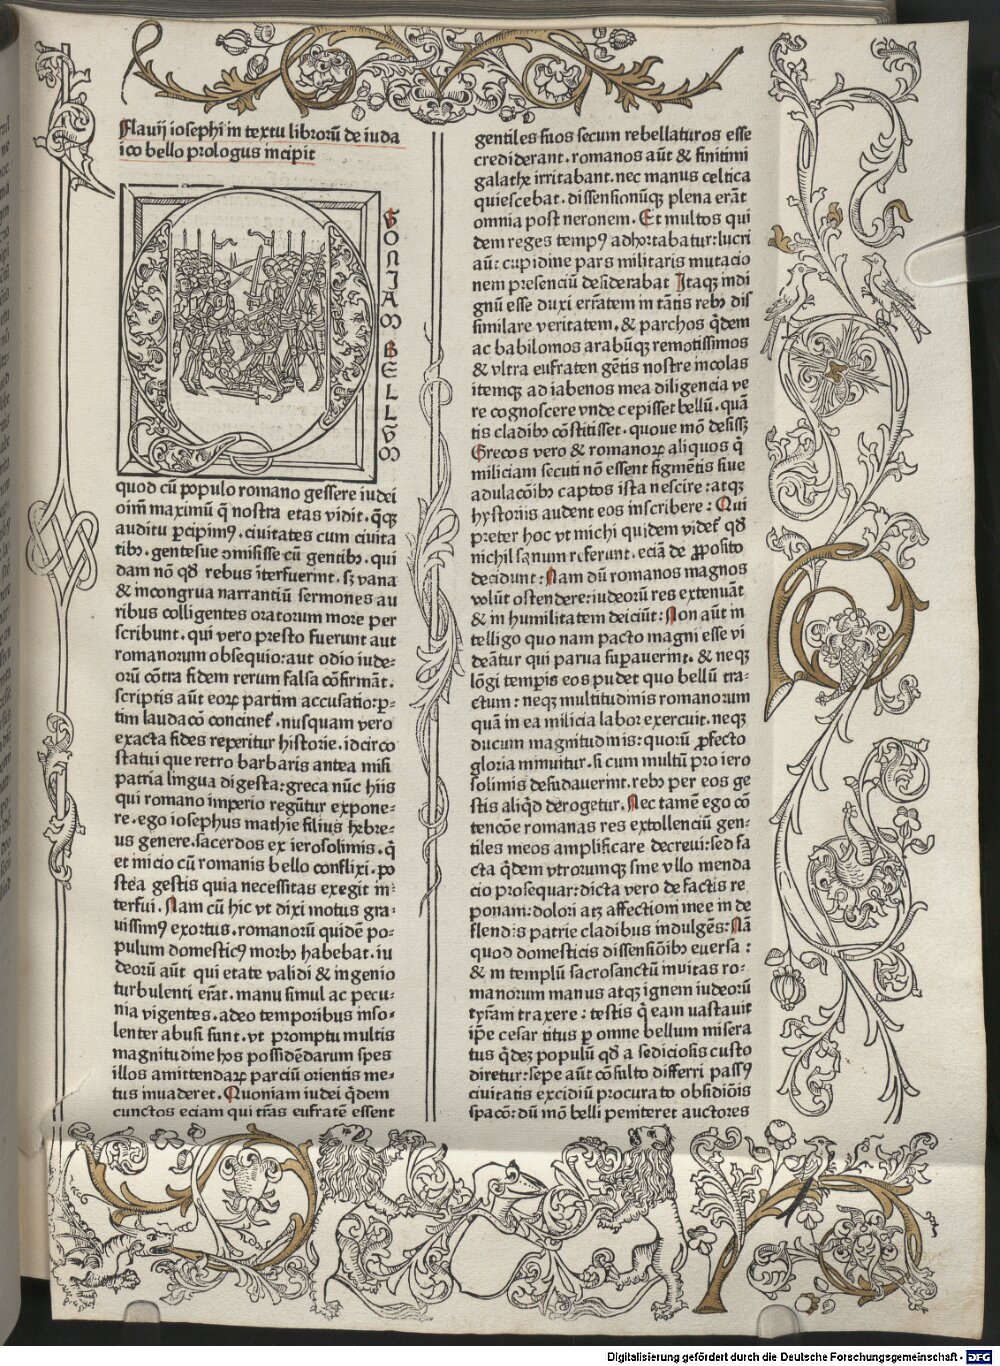 Flauij iosephi in textu librorū de iuda
ico bello prologus incipit
QVONIAM BELLVM
quod cū populo romano gessere iudei
oīm maximū q̄ nostra etas vidit. q̄qꝫ
auditu ꝑcipimꝰ. ciuitates cum ciuita
tibꝫ. gentesue ↄmisisse cū gentibꝫ. qui
dam nō qđ rebus īterfuerint. sꝫ vana
& incongrua narrantiū sermones au
ribus colligentes oratorum more per
scribunt. qui vero presto fuerunt aut
romanorum obsequio: aut odio iude-
orū cōtra fidem rerum falsa cōfirmāt.
scriptis aūt eoꝝ partim accusatio: ꝑ-
tim laudacō concinet᷑. nusquam vero
exacta fides reperitur historie. idcirco
statui que retro barbaris antea misi
patria lingua digesta: greca nūc hiis
qui romano imperio regūtur expone-
re. ego iosephus mathie filius hebre-
us genere. sacerdos ex ierosolimis. q̄
et inicio cū romanis bello conflixi. po
stea gestis quia necessitas exegit in-
terfui. Nam cū hic vt dixi motus gra-
uissimꝰ exortus. romanorū quidē po-
pulum domesticꝰ morbꝫ habebat. iu
deorū aūt qui etate validi & ingenio
turbulenti erāt. manu simul ac pecu-
nia vigentes. adeo temporibus inso-
lenter abusi sunt. vt promptu multis
magnitudine hos possidēdarum spes
illos amittendaꝝ parciū orientis me-
tus inuaderet. Quoniam iudei q̄dem
cunctos eciam qui trās eufratē essent
gentiles suos secum rebellaturos esse
crediderant. romanos aūt & finitimi
galathe irritabant. nec manus celtica
quiescebat. dissensionūqꝫ plena erāt
omnia post neronem. Et multos qui
dem reges tempꝰ adhortabatur: lucri
aūt cupidine pars militaris mutacio
nem presenciū desiderabat Itaqꝫ indi
gnū esse duxi errātem in tātis rebꝫ dis
similare veritatem. & parchos q̄dem
ac babilonios arabūqꝫ remotissimos
& vltra eufraten gētis nostre incolas
itemqꝫ adiabenos mea diligencia ve
re cognoscere vnde cepisset bellū. quā
tis cladibꝫ cōstitisset. quoue mō desissꝫ
Grecos vero & romanoꝝ aliquos q̄
miliciam secuti nō essent figmētis siue
adulacōibꝫ captos ista nescire: atqꝫ
hystoriis audent eos inscribere: Qui
preter hoc vt michi quidem videt᷑ qđ
nichil sanum referunt. eciā de ꝓposito
decidunt: Nam dū romanos magnos
volūt ostendere: iudeorū res extenuāt
& in humilitatem deiciūt: Non aūt in
telligo quo nam pacto magni esse vi
deātur qui parua suꝑauerint. & neqꝫ
lōgi temꝑis eos pudet quo bellū tra-
ctum: neqꝫ multitudinis romanorum
quā in ea milicia labor exercuit. neqꝫ
ducum magnitudinis: quorū ꝓfecto
gloria minuitur. si cum multū pro iero
solimis desudauerint. rebꝫ per eos ge
stis aliqđ derogetur. Nec tamē ego cō
tencōe romanas res extollenciū gen-
tiles meos amplificare decreui: sed fa
cta q̄dem vtrorumqꝫ sine vllo menda
cio prosequar: dicta vero de factis re
ponam: dolori atꝫ affectioni mee in de
flendis patrie cladibus indulgēs: Nā
quod domesticis dissensiōibꝫ euersa:
& in templū sacrosanctū inuitas ro-
manorum manus atqꝫ ignem iudeorū
tyrām traxere: testis q̄ eam vastauit
ip̄e cesar titus ꝑ omne bellum misera
tus q̄deꝫ populū qđ a sediciosis custo
diretur: sepe aūt cōsulto differri passꝰ
ciuitatis excidiū procurato obsidiōis
spacō: dū mō belli peniteret auctores
Digitalisierung gefördert durch die Deutsche Forschungsgemeinschaft - DFG